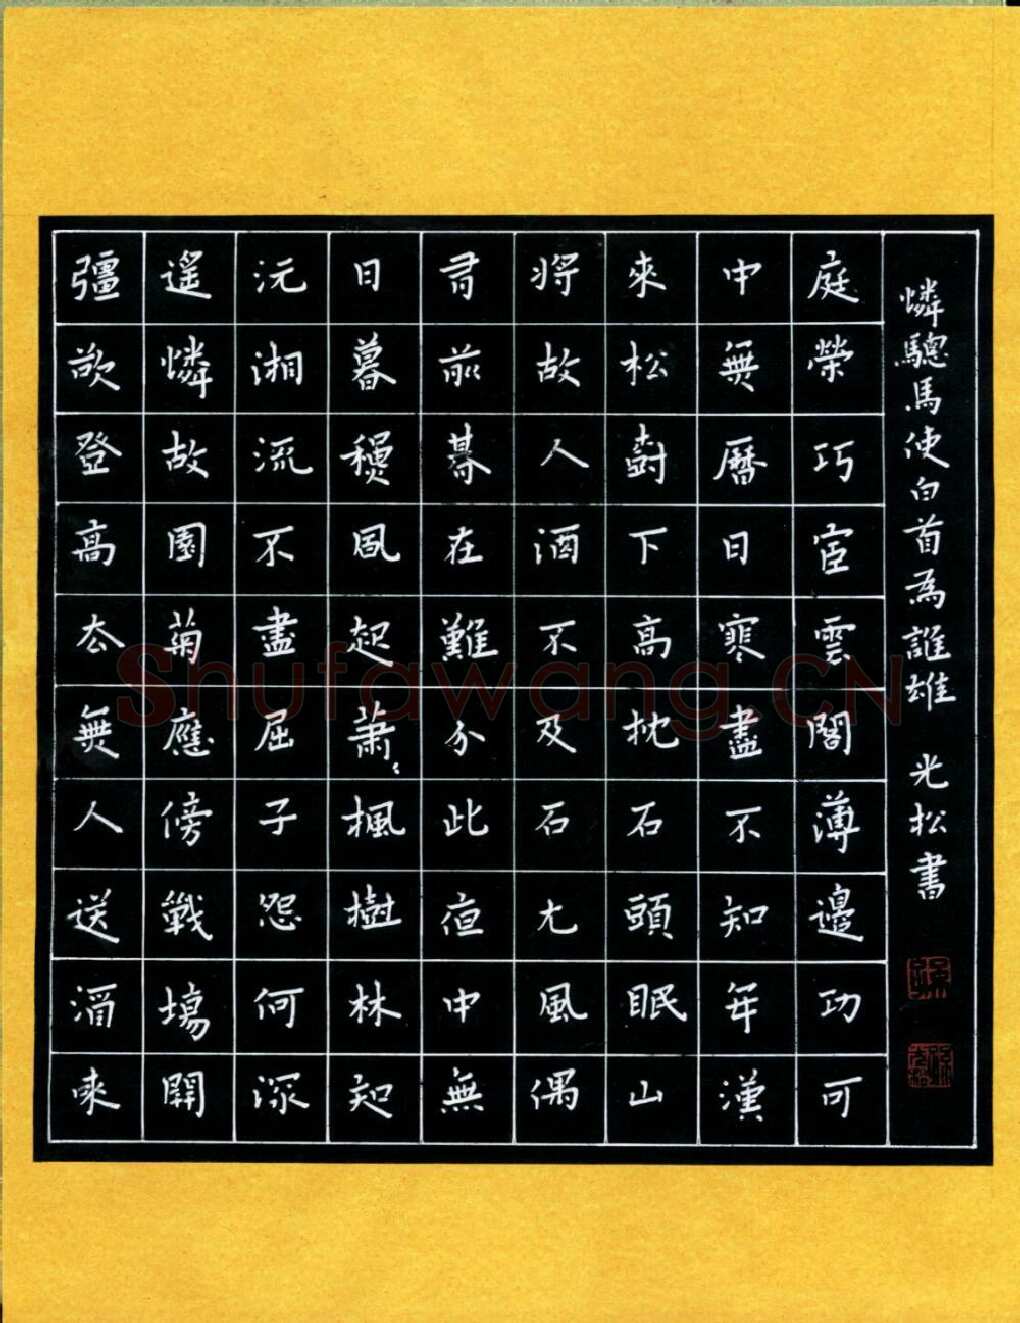 彊欲登高去無人送酒來
遥憐故園菊應傍戰場開
沅湘流不盡屈子怨何深
日暮穐風起蕭々楓樹林知
有前朞在難分此夜中無
將故人酒不及石尤風偶
來松樹下高枕石頭眠山
中無曆日寒盡不知年漢
庭榮巧宦雲閣薄邊功可
憐驄馬使白首為誰雄 光松書
Shufawang.CN